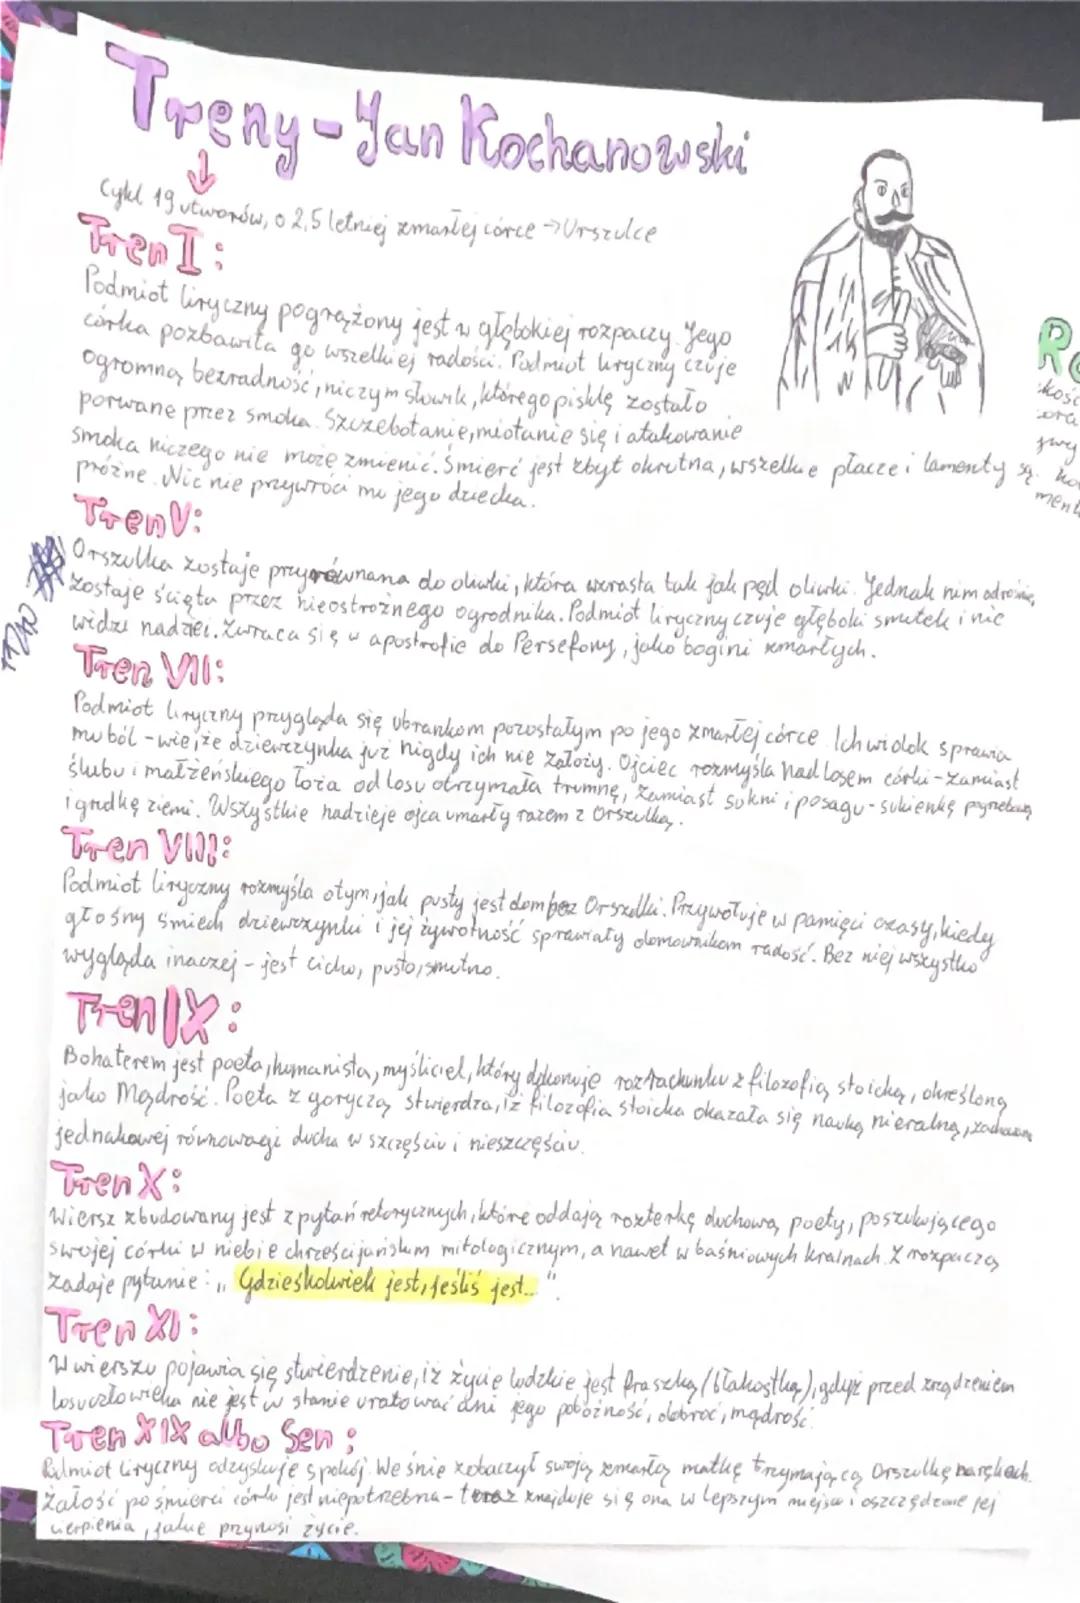 Treny - Jan Kochanowski
Cykl 19 utworów, o 2,5 letniej zmarłej córce → Urszulce
Tren I:
Podmiot liryczny pogrążony jest w głębokiej rozpaczy. Jego
córka pozbawiła go wszelkiej radości. Podmiot liryczny czuje
ogromną bezradność, niczym słowik, którego pisklę zostało
porwane przez smoka. Szczebotanie, miotanie się i atakowanie
smoka niczego nie może zmienić. Śmierć jest zbyt okrutna, wszelkie płacze i lamenty są
próżne. Nic nie przywróci mu jego dziecka.
Tren V:
Orszulka zostaje przyrównana do oliwki, która wzrasta tak jak pęd oliwki. Jednak nim odrośnie,
zostaje ścięta przez nieostrożnego ogrodnika. Podmiot liryczny czuje głęboki smutek i nie
widzi nadziei. Zwraca się w apostrofie do Persefony, jako bogini zmarłych.
Tren VII:
Podmiot liryczny przygląda się ubrankom pozostałym po jego zmarłej córce. Ich widok sprawia
mu ból - wie, że dziewczynka już nigdy ich nie założy. Ojciec rozmyśla nad losem córki - zamiast
ślubu i małżeńskiego łoża od losu otrzymała trumnę, zamiast sukni i posagu - sukienkę
i grudkę ziemi. Wszystkie nadzieje ojca umarły razem z Orszulką.
Tren VIII:
Podmiot liryczny rozmyśla o tym, jak pusty jest dom bez Orszulki. Przywołuje w pamięci czasy, kiedy
głośny śmiech dziewczynki i jej żywotność sprawiały domownikom radość. Bez niej wszystko
wygląda inaczej - jest cicho, pusto, smutno.
Tren IX:
Bohaterem jest poeta, humanista, myśliciel, który dokonuje rozrachunku z filozofią stoicką, określoną
jako Mądrość. Poeta z goryczą stwierdza, iż filozofia stoicka okazała się nauką nieralną,
jednakowej równowagi ducha w szczęściu i nieszczęściu.
Tren X:
Wiersz zbudowany jest z pytań retorycznych, które oddają rozterkę duchową poety, poszukującego
swojej córki w niebie chrześcijańskim mitologicznym, a nawet w baśniowych krainach. Z rozpaczą
zadaje pytanie: „Gdzieśkolwiek jest, jeśliś jest..."
Tren XI:
W wierszu pojawia się stwierdzenie, iż życie ludzkie jest fraszką (błahostką), gdyż przed zrządzeniem
losu człowieka nie jest w stanie uratować ani jego pobożność, dobroć, mądrość.
Tren XIX albo Sen:
Podmiot liryczny odzyskuje spokój. We śnie zobaczył swoją zmarłą matkę trzymającą Orszulkę na rękach.
Żałość po śmierci córki jest niepotrzebna - teraz znajduje się ona w lepszym miejscu i oszczędzone jej
cierpienia, jakie przynosi życie.